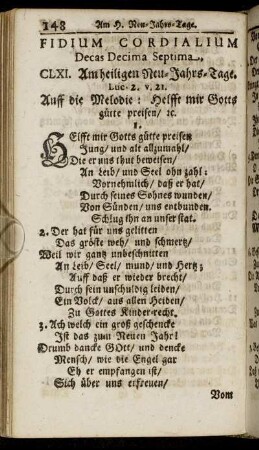 148 Am H. Neu-Jahrs-Tage.
FIDIUM CORDIALIUM
Decas Decima Septima.
CLXI. Am heiligen Neu-Jahrs-Tage.
Luc. 2. v. 21.
Auff die Melodie: Helfft mir Gotts
gütte preisen/ ꝛc.
1.
HElfft mir Gotts gütte preisen
Jung/ und alt allzumahl/
Die er uns thut beweisen/
An Leib/ und Seel ohn zahl:
Vornehmlich/ daß er hat/
Durch seines Sohnes wunden/
Von Sünden/ uns entbunden.
Schlug ihn an unser stat.
2. Der hat für uns gelitten
Das größte weh/ und schmertz/
Weil wir gantz unbeschnitten
An Leib/ Seel/ mund/ und Hertz;
Auff daß er wieder brecht/
Durch sein unschuldig leiden/
Ein Volck/ aus allen Heiden/
Zu Gottes Kinder-recht.
3. Ach welch ein groß geschencke
Ist das zum Neuen Jahr!
Drumb dancke GOtt/ und dencke
Mensch/ wie die Engel gar
Eh er empfangen ist/
Sich über uns erfreuen/
Vom